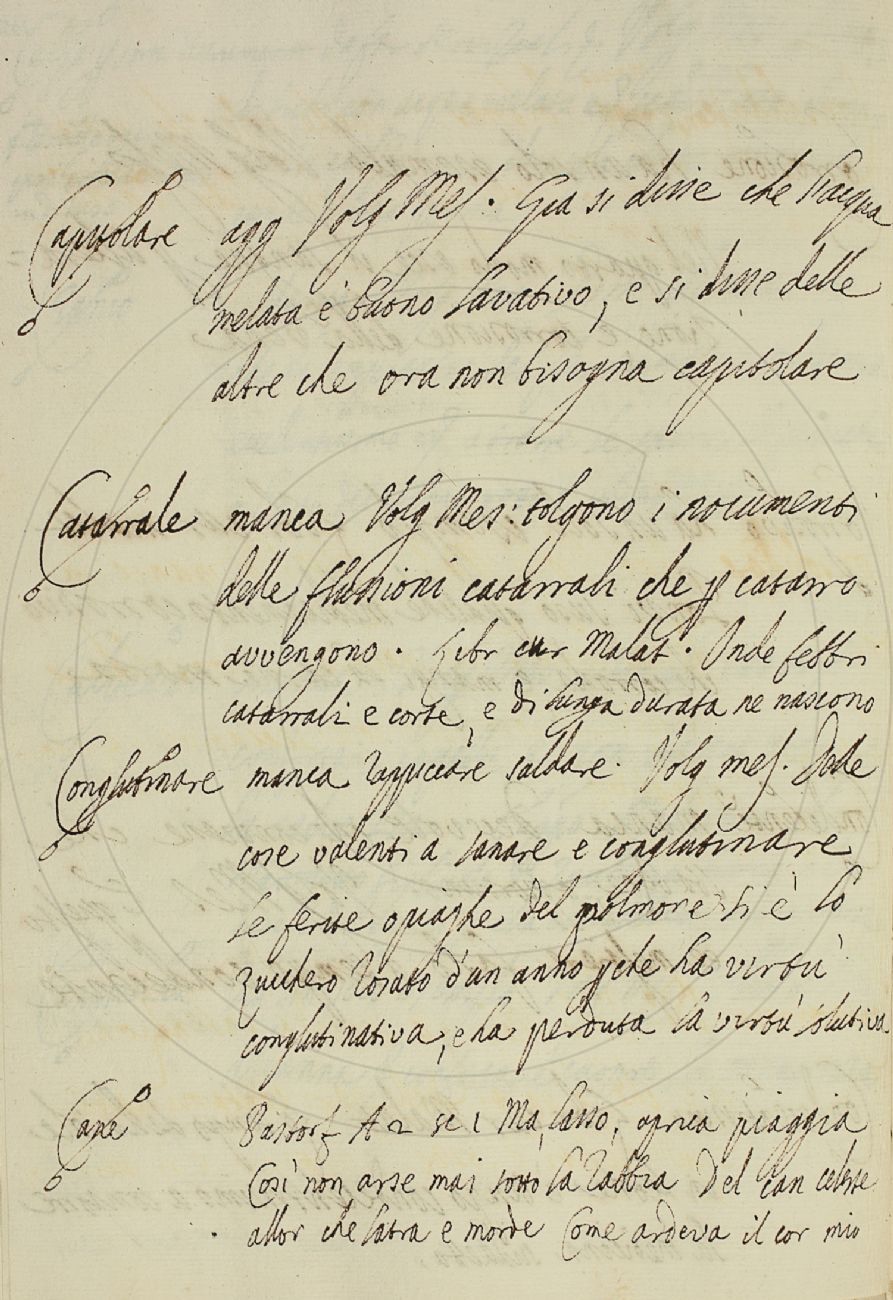 Capitolare agg Volg Mes. Gia si disse che l'acqua
melata è buono lavativo, e si disse delle
altre che ora non bisogna capitolare
Catarrale manca Volg Mes: tolgono i nocumenti
delle flussioni catarrali che p catarro
avvengono. Libr cur Malat. Onde febbri
catarrali e corte, e di lunga durata ne nascono
Conglutinare manca rappiccare saldare. Volg mes. Delle
cose valenti a sanare e conglutinare
le ferite o piaghe del polmore si è lo
zucchero rosato d'un anno pche ha virtù
conglutinativa, e ha perduta la virtù solutiva
Cane Pastorf A 2 sc 1 Ma, lasso, aprica piaggia
Così non arse mai sotto la rabbia Del can celeste
allor che latra e morde Come ardeva il cor mio